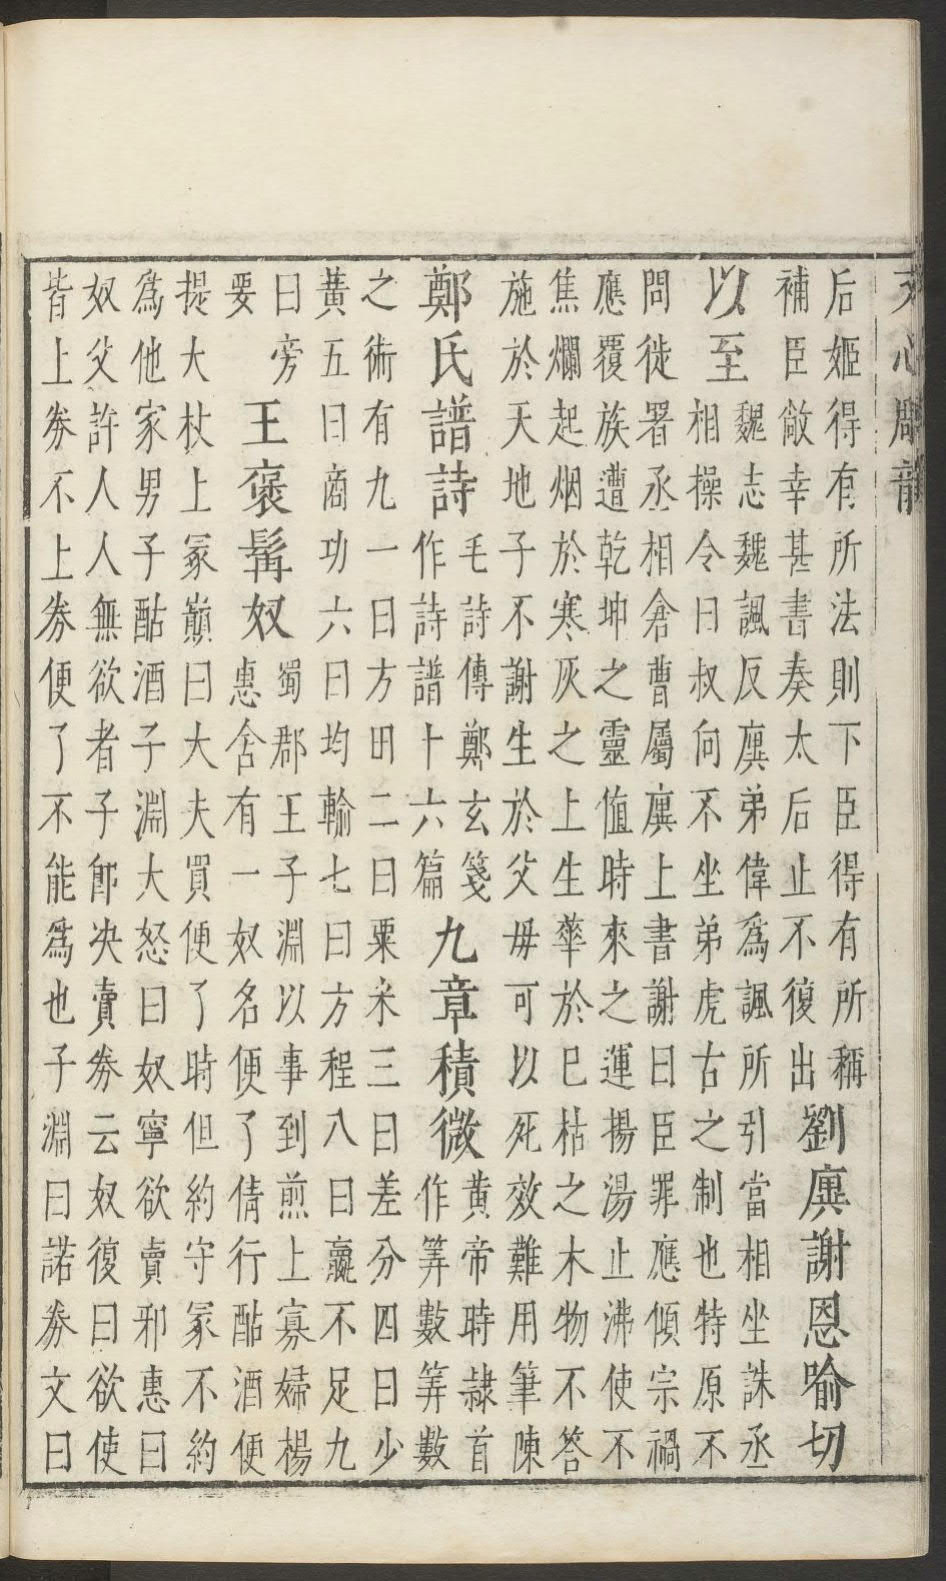 文心雕龍
后姬得有所法則下臣得有所稱
補臣敞幸甚書奏太后止不復出
劉廙謝恩喻切
以至
魏志魏諷反廙弟偉爲諷所引當相坐誅丞
相操令曰叔向不坐弟虎古之制也特原不
問徙署丞相倉曹屬廙上書謝曰臣罪應傾宗禍
應覆族遭乾坤之靈值時來之運揚湯止沸使不
焦爛起烟於寒灰之上生華於已枯之木物不答
施於天地子不謝生於父母可以死效難用筆陳
鄭氏譜詩
毛詩傳鄭玄箋
作詩譜十六篇
九章積微
黃帝時隷首
作筭數筭數
之術有九一曰方田二曰粟米三曰差分四曰少
黃五曰商功六曰均輸七曰方程八曰贏不足九
曰旁
要
王褒髯奴
蜀郡王子淵以事到煎上寡婦楊
惠舍有一奴名便了倩行酤酒便
提大杖上冢巔曰大夫買便了時但約守冢不約
爲他家男子酤酒子淵大怒曰奴寧欲賣邪惠曰
奴父許人人無欲者子卽决賣券云奴復曰欲使
皆上券不上券便了不能爲也子淵曰諾券文曰